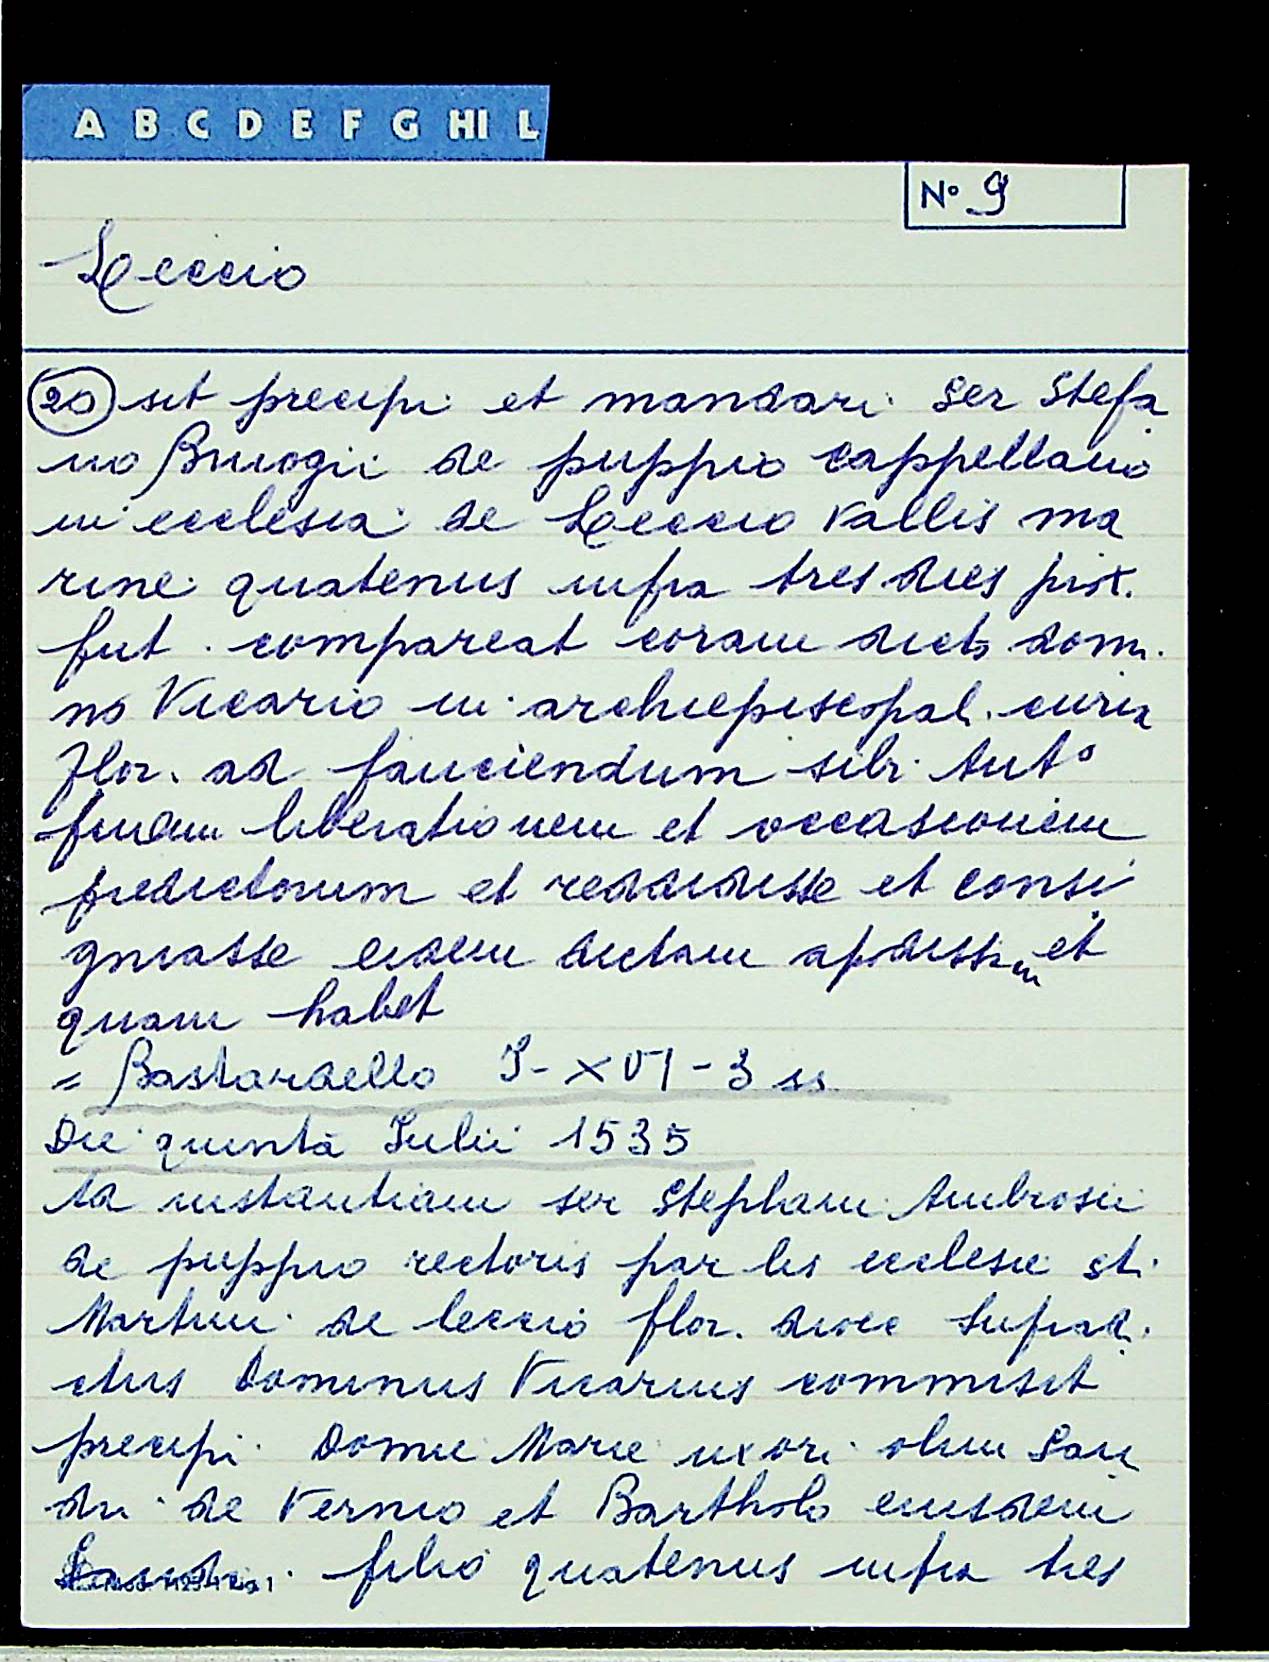 A B C D E F G HI L
N° 9
Leccio
20 sit precipi et mandari ser Stefa
no Bruogii de puppio cappellano
in ecclesia de Leccio Vallis ma
rine quatenus infra tres dies prox.
fut. compareat coram dicto domi
no Vicario in archiepiscopal. curia
flor. ad fauciendum sibi Anto
finam liberationem et occasionem
predictorum et reddidisse et consi
gniasse eidem dictam apodissam et
quam habet
= Bastardello I - XVI - 3 ss
Die quinta Iulii 1535
Ad instantiam ser Stephani Ambrosii
de puppio rectoris par lis ecclesie sti
Martini de leccio flor. dioce suprad.
ctus Dominus Vicarius commisit
precipi Domine Marie uxori olim San
dri de Vernio et Bartholo eiusdem
Sandri filio quatenus infra tres